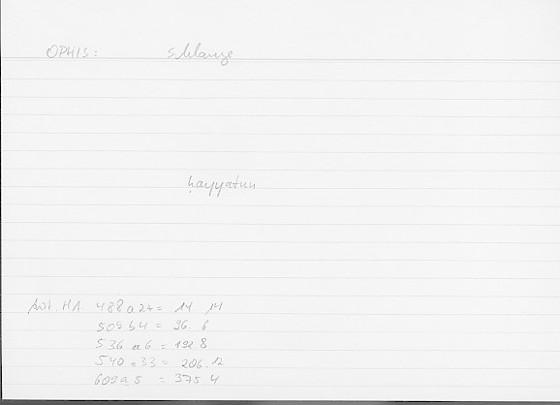 OPHIS: Schlange
ḥayyatun
Arist. HA 488 a 24 = 14 14
509 b 4 = 96. 6
536 a 6 = 192 8
540 a 33 = 206. 12
609 a 5 = 375 4